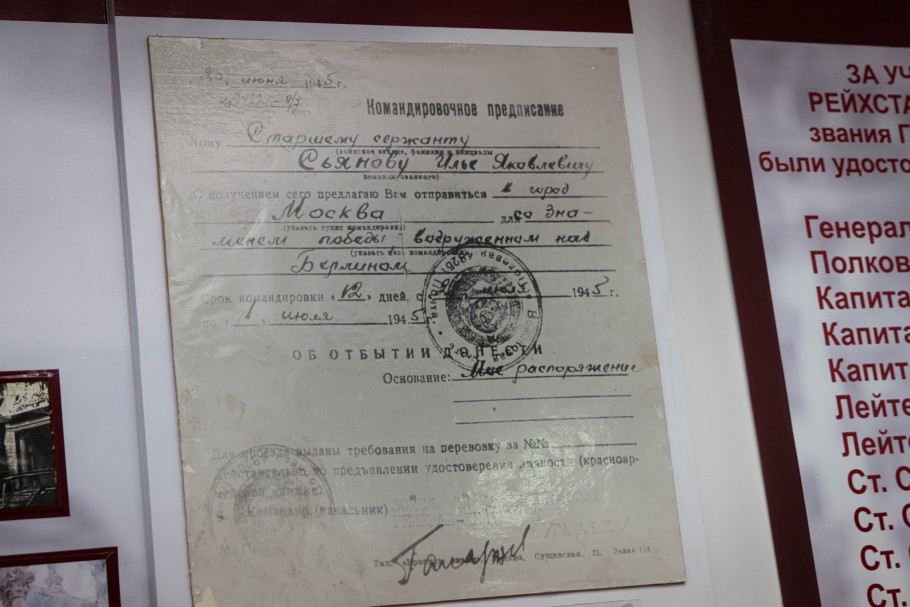 20. июня 1945 г.
Командировочное предписание
Кому Старшему сержанту
(воинское звание, фамилия и инициалы
Сьянову Илье Яковлевичу
командированного)
С получением сего предлагаю Вам отправиться в город
Москва для со зна-
(указать пункт командировки)
менем победы, водруженном над
(указать цель командировки)
Берлином
Срок командировки «12» дней, с 1945 г.
по « » июля 1945
ОБ ОТБЫТИИ ДОНЕСТИ
Основание: Мое распоряжение
Для проезда выданы требования на перевозку за №№
Действительно по предъявлении удостоверения личности (красноар-
мейской книжки).
Командир (начальник)
М. П.
Сущевская, 21. Заказ 114
ЗА УЧ
РЕЙХСТА
звания Г
были удосто
Генерал
Полков
Капита
Капита
Капит
Лейте
Лейте
Ст. С
Ст. С
Ст.
Ст.